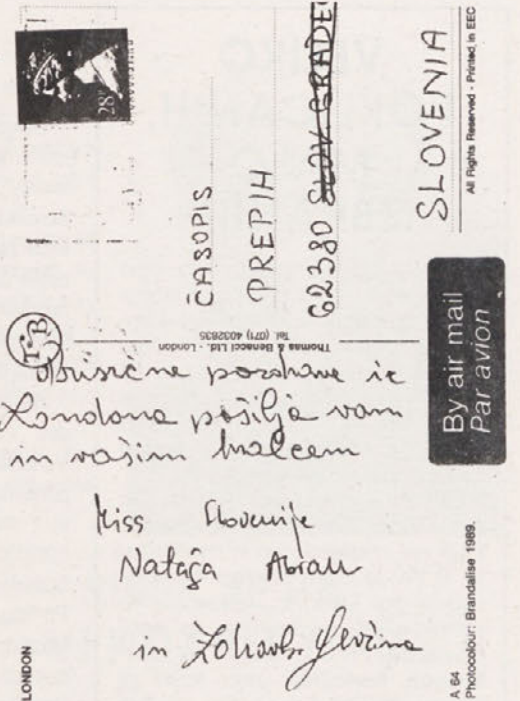 28
ČASOPIS
PREPIH
62380 SLOV. GRADEC
SLOVENIA
All Rights Reserved - Printed in EEC
By air mail
Par avion
TB
Thomas & Benacci Ltd. - London
Tel. (071) 4032835
pozdrave iz
Londona pošilja vam
in vašim bralcem
Miss Slovenije
Nataša Abram
in
LONDON
A 64
Photocolour: Brandalise 1989.